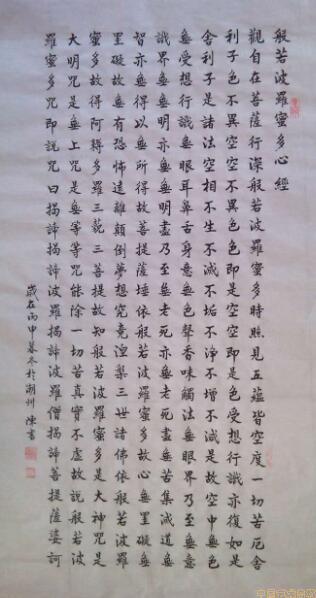 般若波羅蜜多心經
觀自在菩薩行深般若波羅蜜多時照見五蘊皆空度一切苦厄舍
利子色不異空空不異色色即是空空即是色受想行識亦復如是
舍利子是諸法空相不生不滅不垢不淨不增不減是故空中無色
無受想行識無眼耳鼻舌身意無色聲香味觸法無眼界乃至無意
識界無無明亦無無明盡乃至無老死亦無老死盡無苦集滅道無
智亦無得以無所得故菩提薩埵依般若波羅蜜多故心無罣礙無
罣礙故無有恐怖遠離顛倒夢想究竟涅槃三世諸佛依般若波羅
蜜多故得阿耨多羅三藐三菩提故知般若波羅蜜多是大神咒是
大明咒是無上咒是無等等咒能除一切苦真實不虛故說般若波
羅蜜多咒即說咒曰揭諦揭諦波羅揭諦波羅僧揭諦菩提薩婆訶
歲在丙申暮冬於潮州 陳書